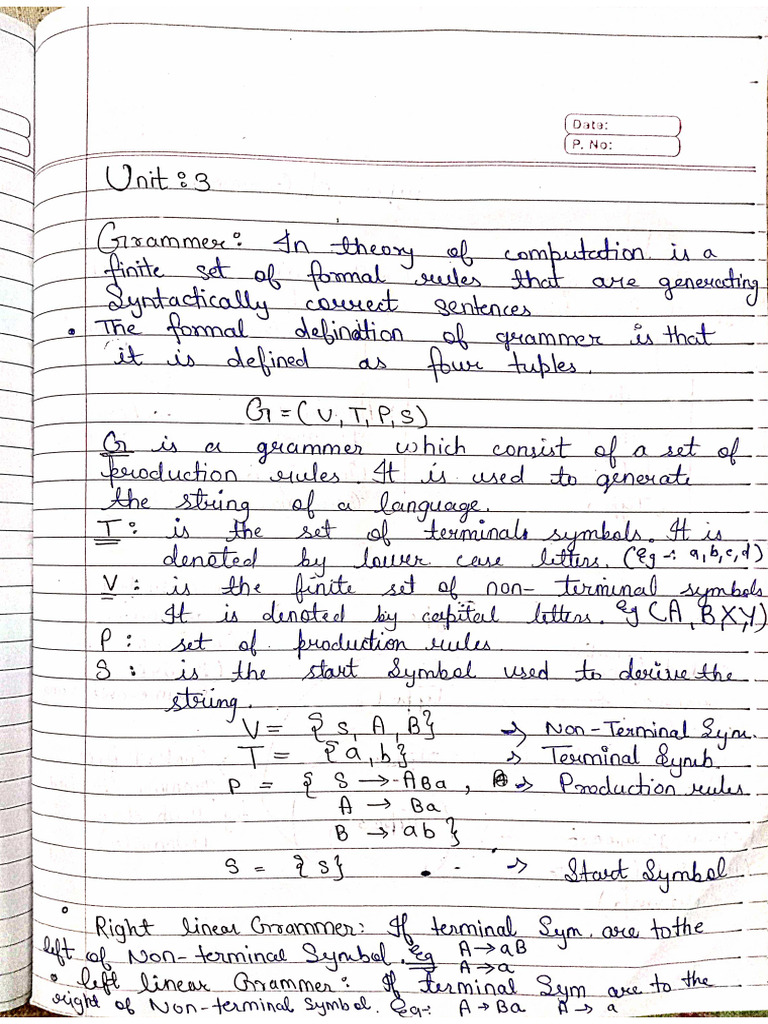 Date:
P. No:
Unit : 3
Grammer: In theory of computation is a
finite set of formal rules that are generating
Syntactically correct sentences
• The formal defination of grammer is that
it is defined as four tuples.
G = (V, T, P, S)
G is a grammer which consist of a set of
production rules. It is used to generate
the string of a language.
T : is the set of terminals symbols. It is
denoted by lower case letters. (eg -: a, b, c, d)
V : is the finite set of non-terminal symbols
It is denoted by capital letters. eg (A, B, X, Y)
P : set of production rules.
S : is the start Symbol used to derive the
string.
V = { S, A, B} → Non-Terminal Sym.
T = {a, b} → Terminal Symb.
P = { S → ABa , → Production rules
A → Ba
B → ab }
S = { S} → Start Symbol
• Right linear Grammer: If terminal Sym. are to the
left of Non-terminal Symbol. eg A → aB
A → a
• left linear Grammer: If terminal Sym are to the
right of Non-terminal Symbol. eg -: A → Ba A → a